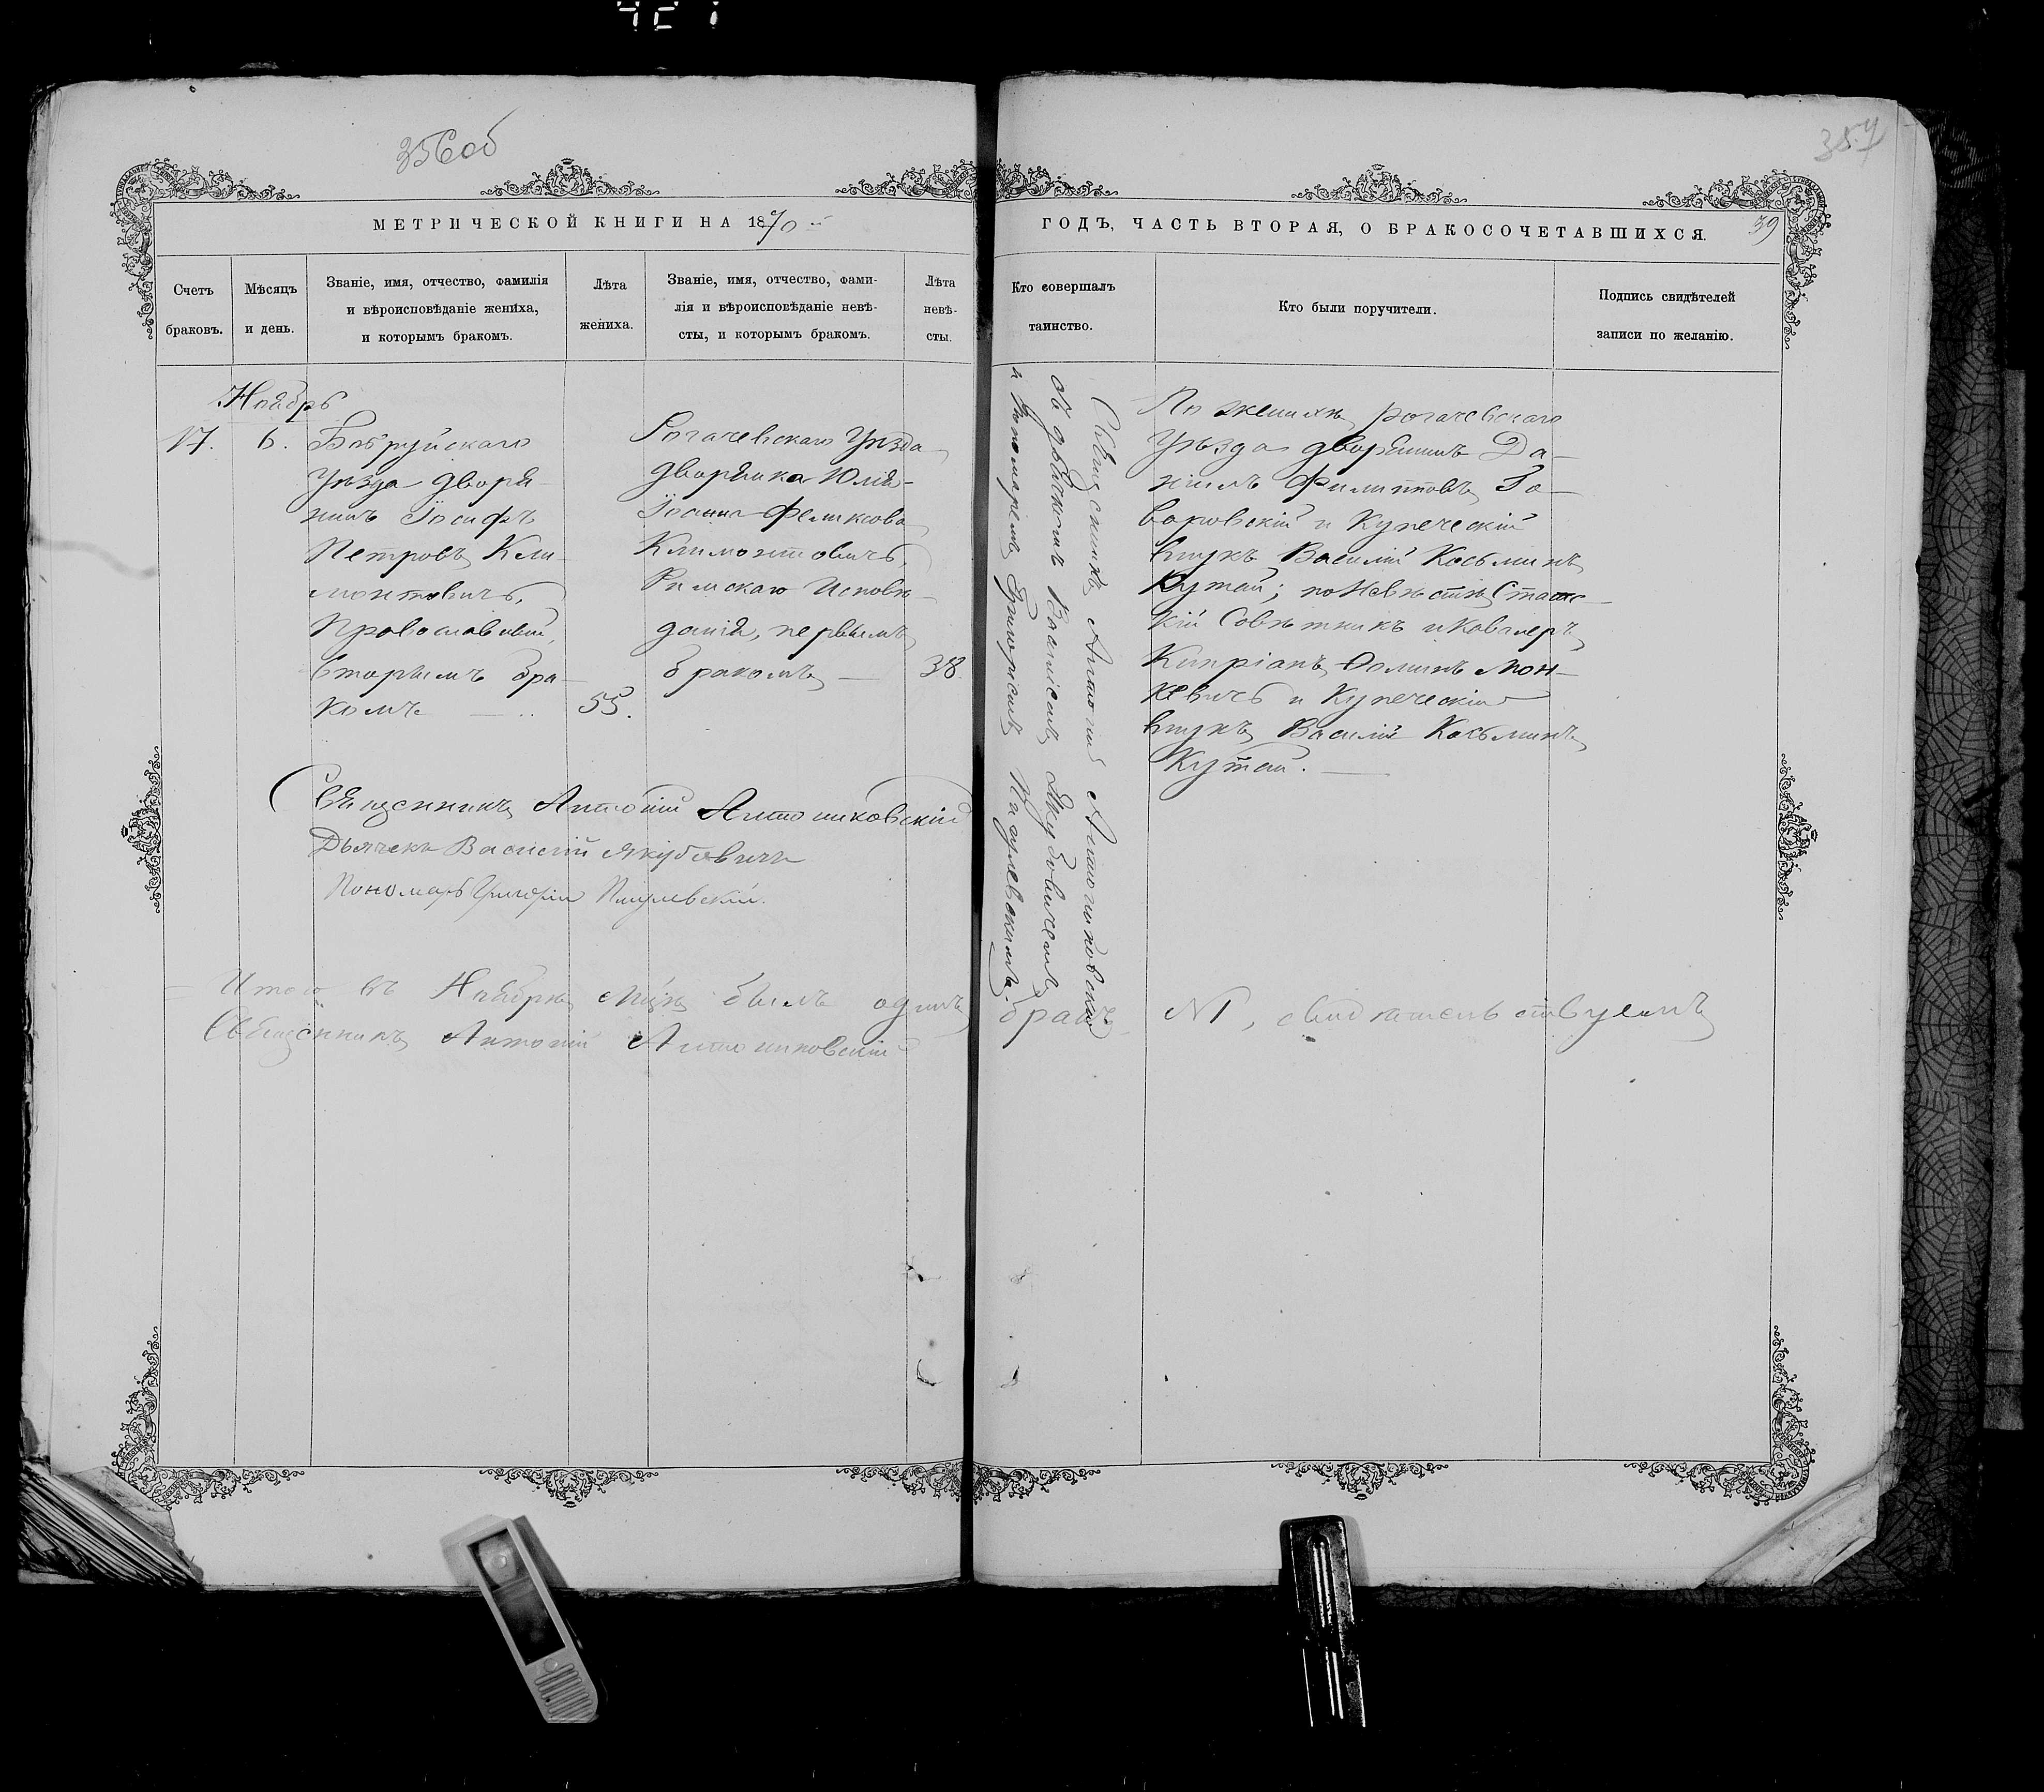 421
356об
357
МЕТРИЧЕСКОЙ КНИГИ НА 1870й
ГОДЪ, ЧАСТЬ ВТОРАЯ, О БРАКОСОЧЕТАВШИХСЯ.
39
Счетъ
браковъ.
Мѣсяцъ
и день.
Званіе, имя, отчество, фамилія
и вѣроисповѣданіе жениха,
и которымъ бракомъ.
Лѣта
жениха.
Званіе, имя, отчество, фами-
лія и вѣроисповѣданіе невѣ-
сты, и которымъ бракомъ.
Лѣта
невѣ-
сты.
Кто совершалъ
таинство.
Кто были поручители.
Подпись свидѣтелей
записи по желанію.
Ноябрь
17.
6.
Бобруйскаго
Уѣзда дворя-
нинъ Іосифъ
Петровъ Кли-
монтовичъ,
Православный,
вторымъ бра-
комъ
55.
Рогачевскаго Уѣзда
дворянка Юлія-
Іоанна Феликсова
Климонтовичъ,
Римскаго Исповѣ-
данія, первымъ
бракомъ
38.
Священникъ Антоній
съ дьячкомъ Василіемъ Якубовичемъ
и Пономаремъ Григоріемъ
По женихѣ Рогачевскаго
Уѣзда дворянинъ Да-
ніилъ Филипповъ Го-
воровскій и Купеческій
внукъ Василій Косьминъ
Кутай; по Невѣстѣ Статс-
кій Совѣтникъ и Кавалеръ
Кипріанъ Фоминъ Мон-
кевичъ и Купеческій
внукъ Василій Косьминъ
Кутай.
Священникъ Антоній
Дьячекъ Василій Якубовичъ
Пономарь Григорій
Итого въ Ноябрѣ м-цѣ былъ одинъ бракъ №1, свидѣтельствуемъ
Священникъ Антоній